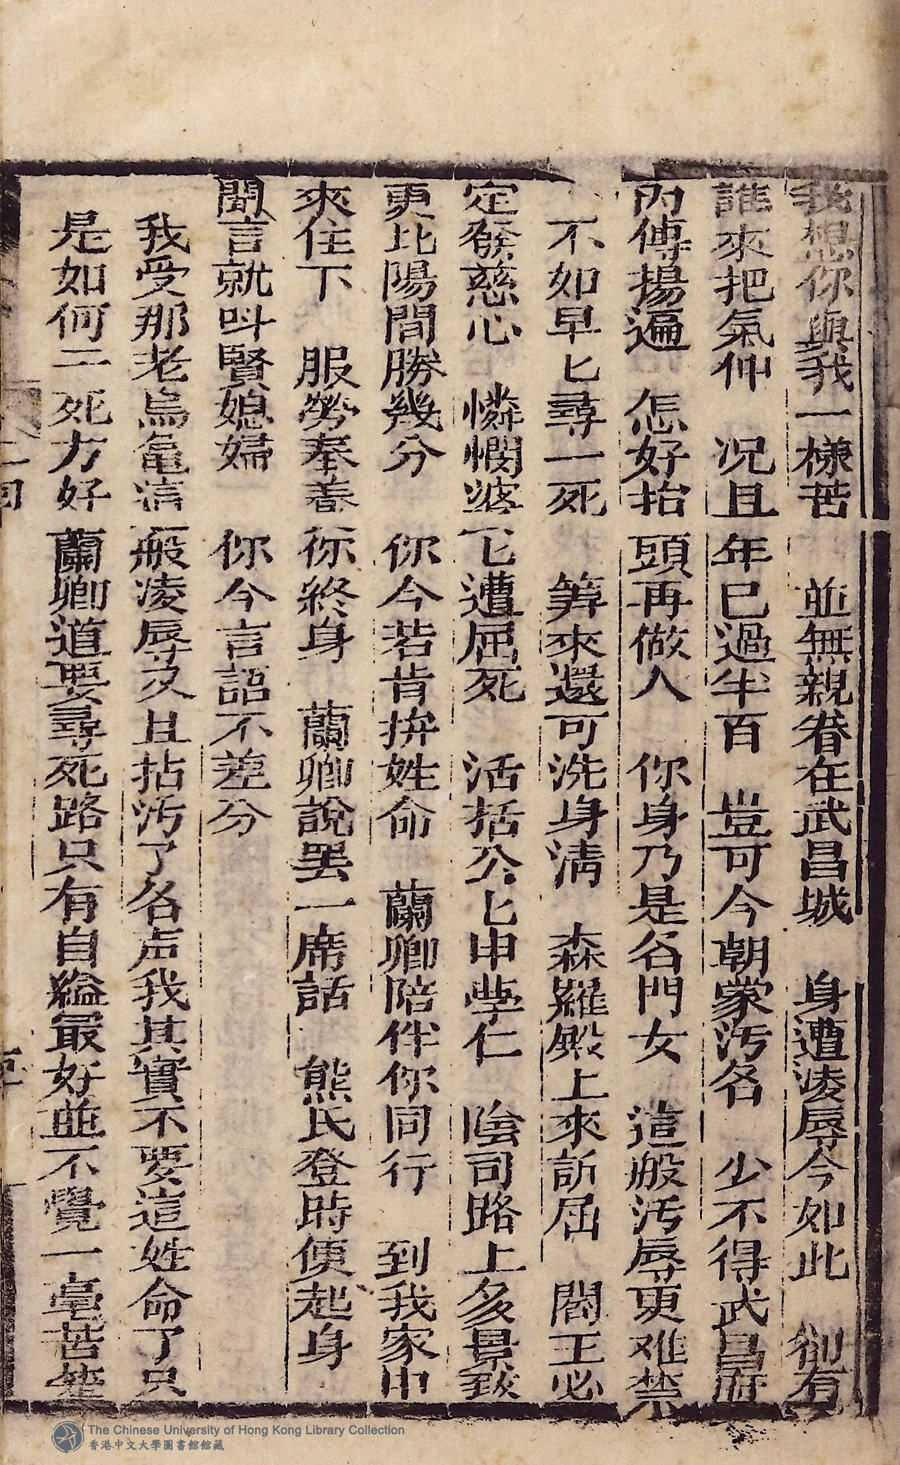 我想你與我一樣苦　並無親眷在武昌城　身遭凌辱今如此　卻有
誰來把氣伸　况且年巳過半百　豈可今朝蒙汚名　少不得武昌府
内傳揚遍　怎好抬頭再做人　你身乃是名門女　這般汚辱更难禁
不如早匕尋一死　筭來還可洗身淸　森羅殿上來訴屈　閻王必
定發慈心　憐憫婆匕遭屈死　活括公匕申㪯仁　陰司路上多景致
更比陽間勝幾分　你今若肯拚姓命　蘭卿陪伴你同行　到我家中
來住下　服勞奉養你終身　蘭卿說罢一席話　熊氏登時便起身
聞言就呌賢媳婦　你今言語不差分
我受那老烏龜這般凌辱又且拈汚了名声我其實不要這姓命了只
是如何一死方好　蘭卿道要尋死路只有自縊最好並不覺一毫苦楚
一回
The Chinese University of Hong Kong Library Collection
香港中文大學圖書館館藏